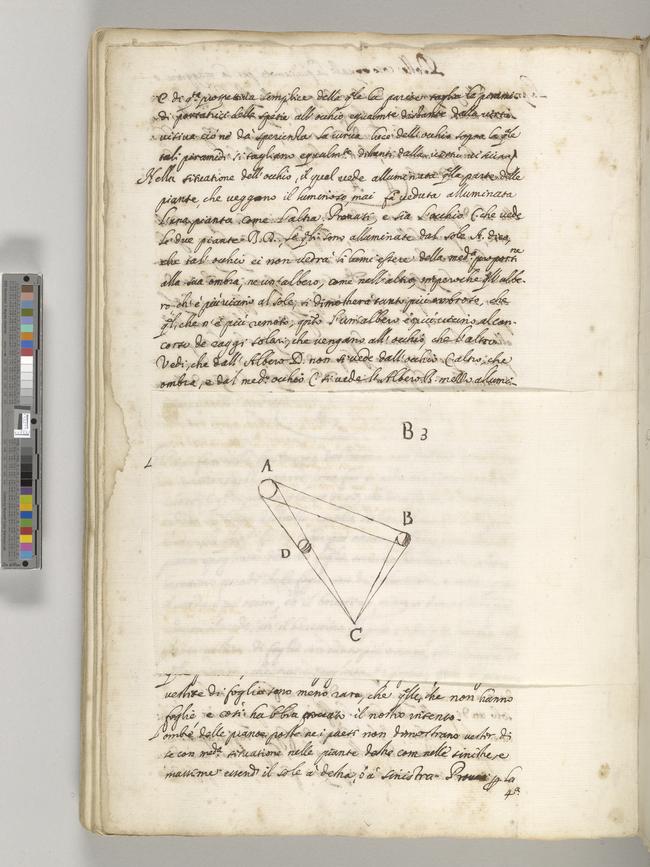 E di qta prospettiva semplice della qle la parete taglia le piramidi
di portatrici delle spetie all'occhio equalmte distante dalla virtù
visiva ci ono da sperienza la curva luce dell'occhio sopra la qle
tali piramidi si tagliano equalmte distanti dalla virtù visiva
Nella situatione dell'occhio, il qual vede alluminata qlla parte delle
piante, che veggono il luminoso, mai fi veduta alluminata
l'una pianta come l'altra. Provati, e sia l'occhio C. che vede
le due piante B. D. le qli sono alluminate dal sole A. dico,
che tal' occhio C. non vedrà li lumi essere della meda proportne
alla sua ombra, ne un'albero, come nell'altro, imperoche qll'albe-
ro ch'è più vicino al sole, si dimostrerà tanto più ombroso, che
qll, che n'è più remoto, qnto l'un'albero è più vicino al con-
corso de raggi solari, che vengano all'occhio, che l'altro
Vedi, che dell'Albero D. non si vede dall'occhio C altro, che
ombra, e dal medo occhio C. si vede l'Albero B. mezzo allumi-
B 3
A
B
D
C
vestite di foglie sono meno rara, che qlle, che non hanno
foglie e così ha bbia il nostro intento.
L'ombre delle piante poste nei paesi non dimostrano vestir, di
se con meda situatione nelle piante destre com nelle sinistre, e
massime essend' il sole à destra, ò à sinistra. Provasi p la
4a.